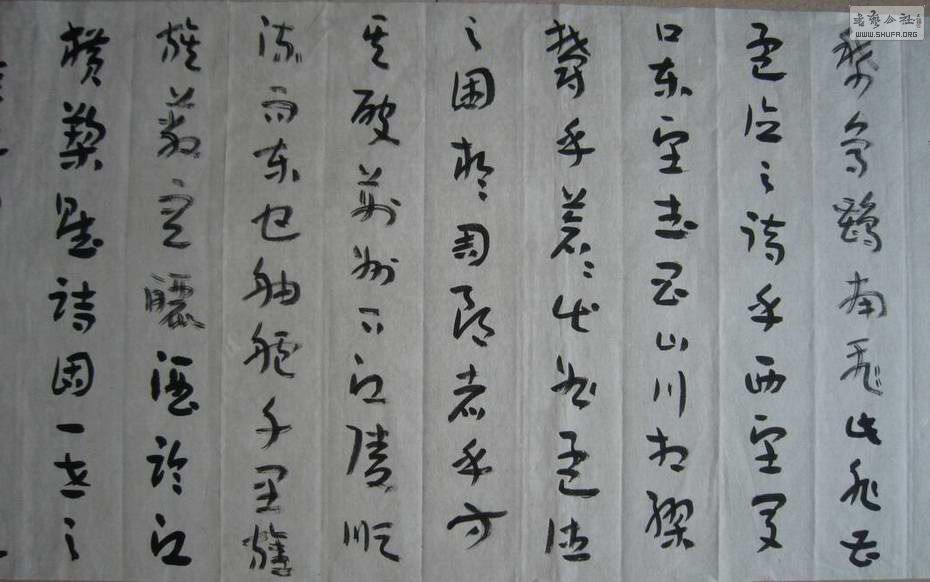 書藝公社
WWW.SHUFA.ORG
稀烏鵲南飛此非曹
孟德之詩乎西望夏
口東望武昌山川相繆
鬱乎蒼々此非孟德
之困於周郎者乎方
其破荊州下江陵順
流而東也舳艫千里旌
旗蔽空釃酒臨江
橫槊賦詩固一世之